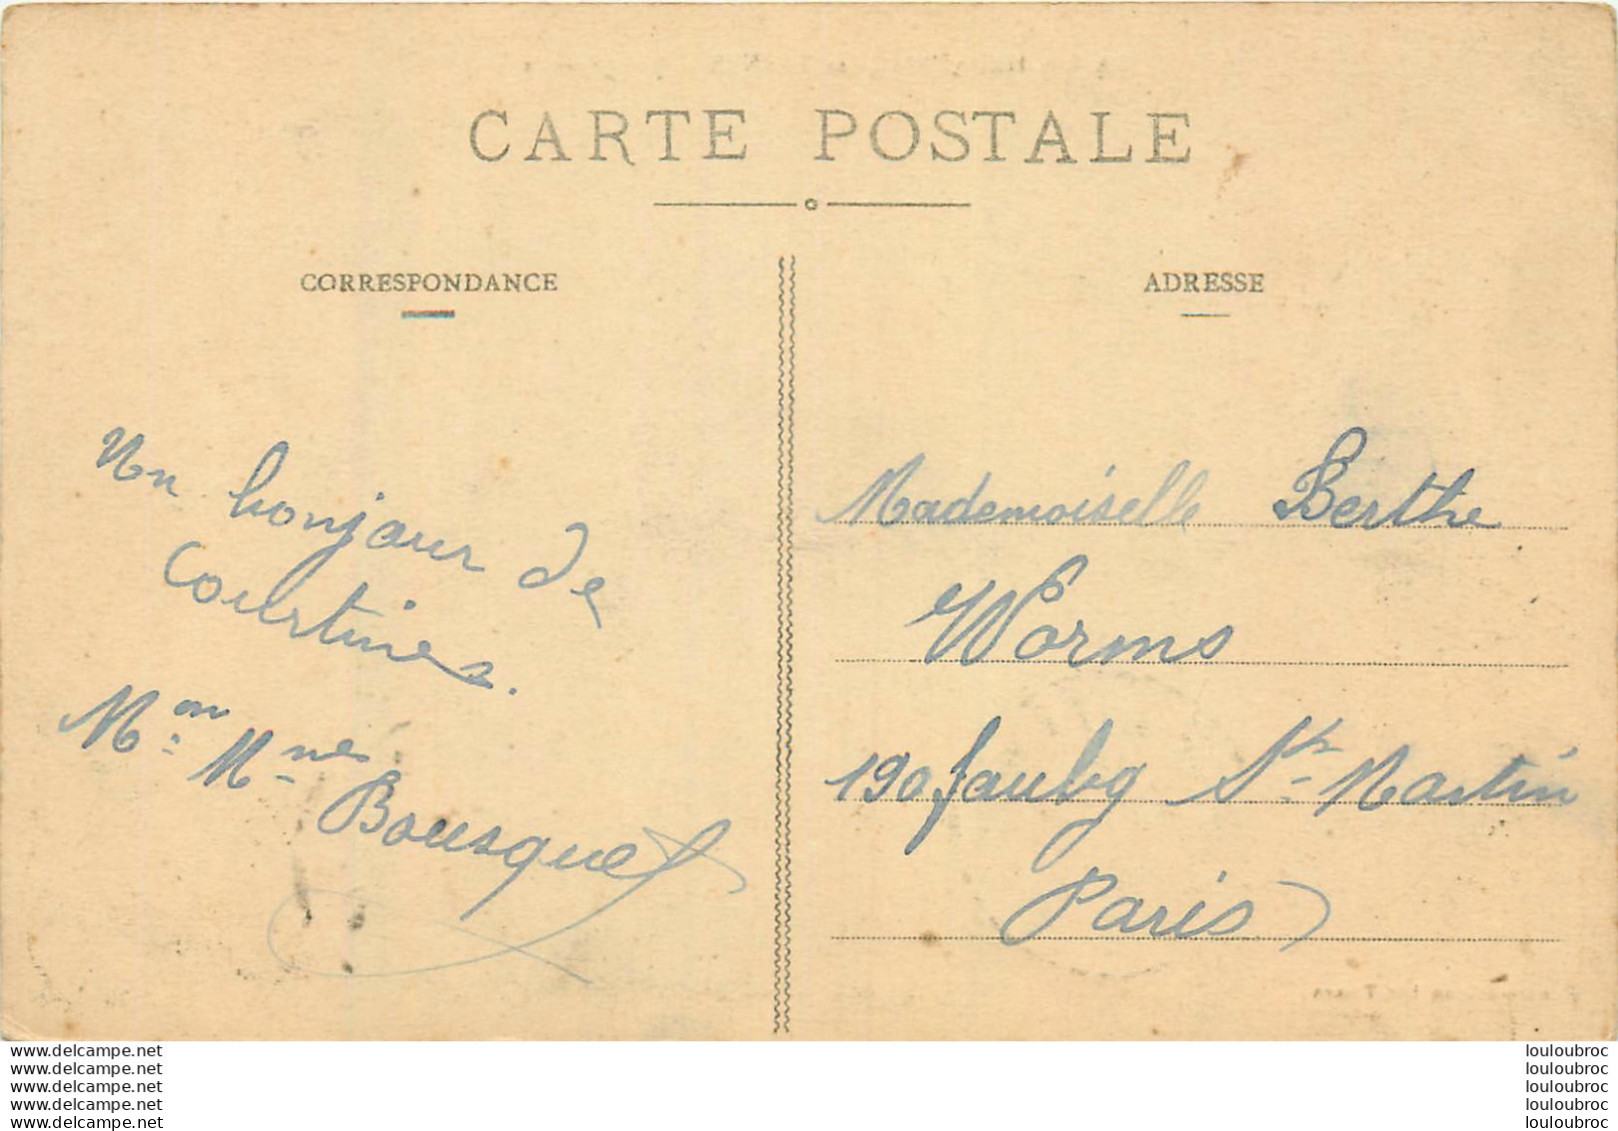 CARTE POSTALE
CORRESPONDANCE
Un bonjour de
Courtines.
M.on M.mes Bousquet
ADRESSE
Mademoiselle Berthe
Worms
190 faubg St. Martin
Paris
www.delcampe.net
www.delcampe.net
www.delcampe.net
www.delcampe.net
www.delcampe.net
louloubroc
louloubroc
louloubroc
louloubroc
louloubroc